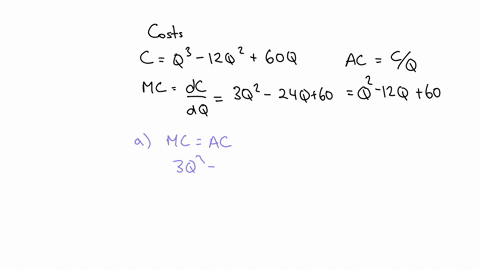 Costs
C = Q³ - 12Q² + 60Q AC = C/Q
MC = dC/dQ = 3Q² - 24Q + 60 = Q² - 12Q + 60
a) MC = AC
3Q² -